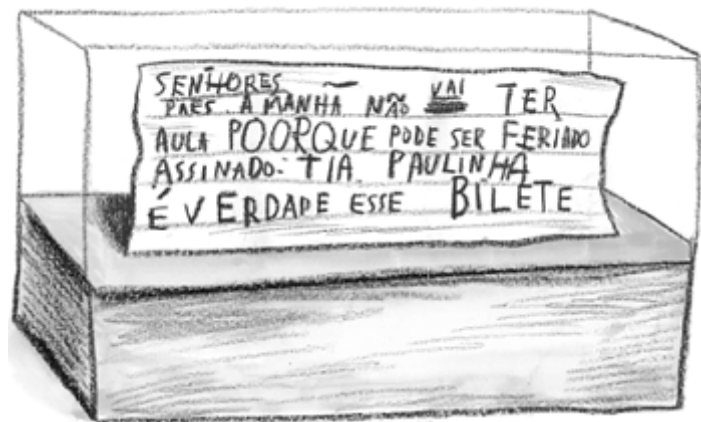 SENHORES
PAES. AMANHÃ NÃO VAI TER
AULA POORQUE PODE SER FERIADO
ASSINADO: TIA PAULINHA
É VERDADE ESSE BILETE